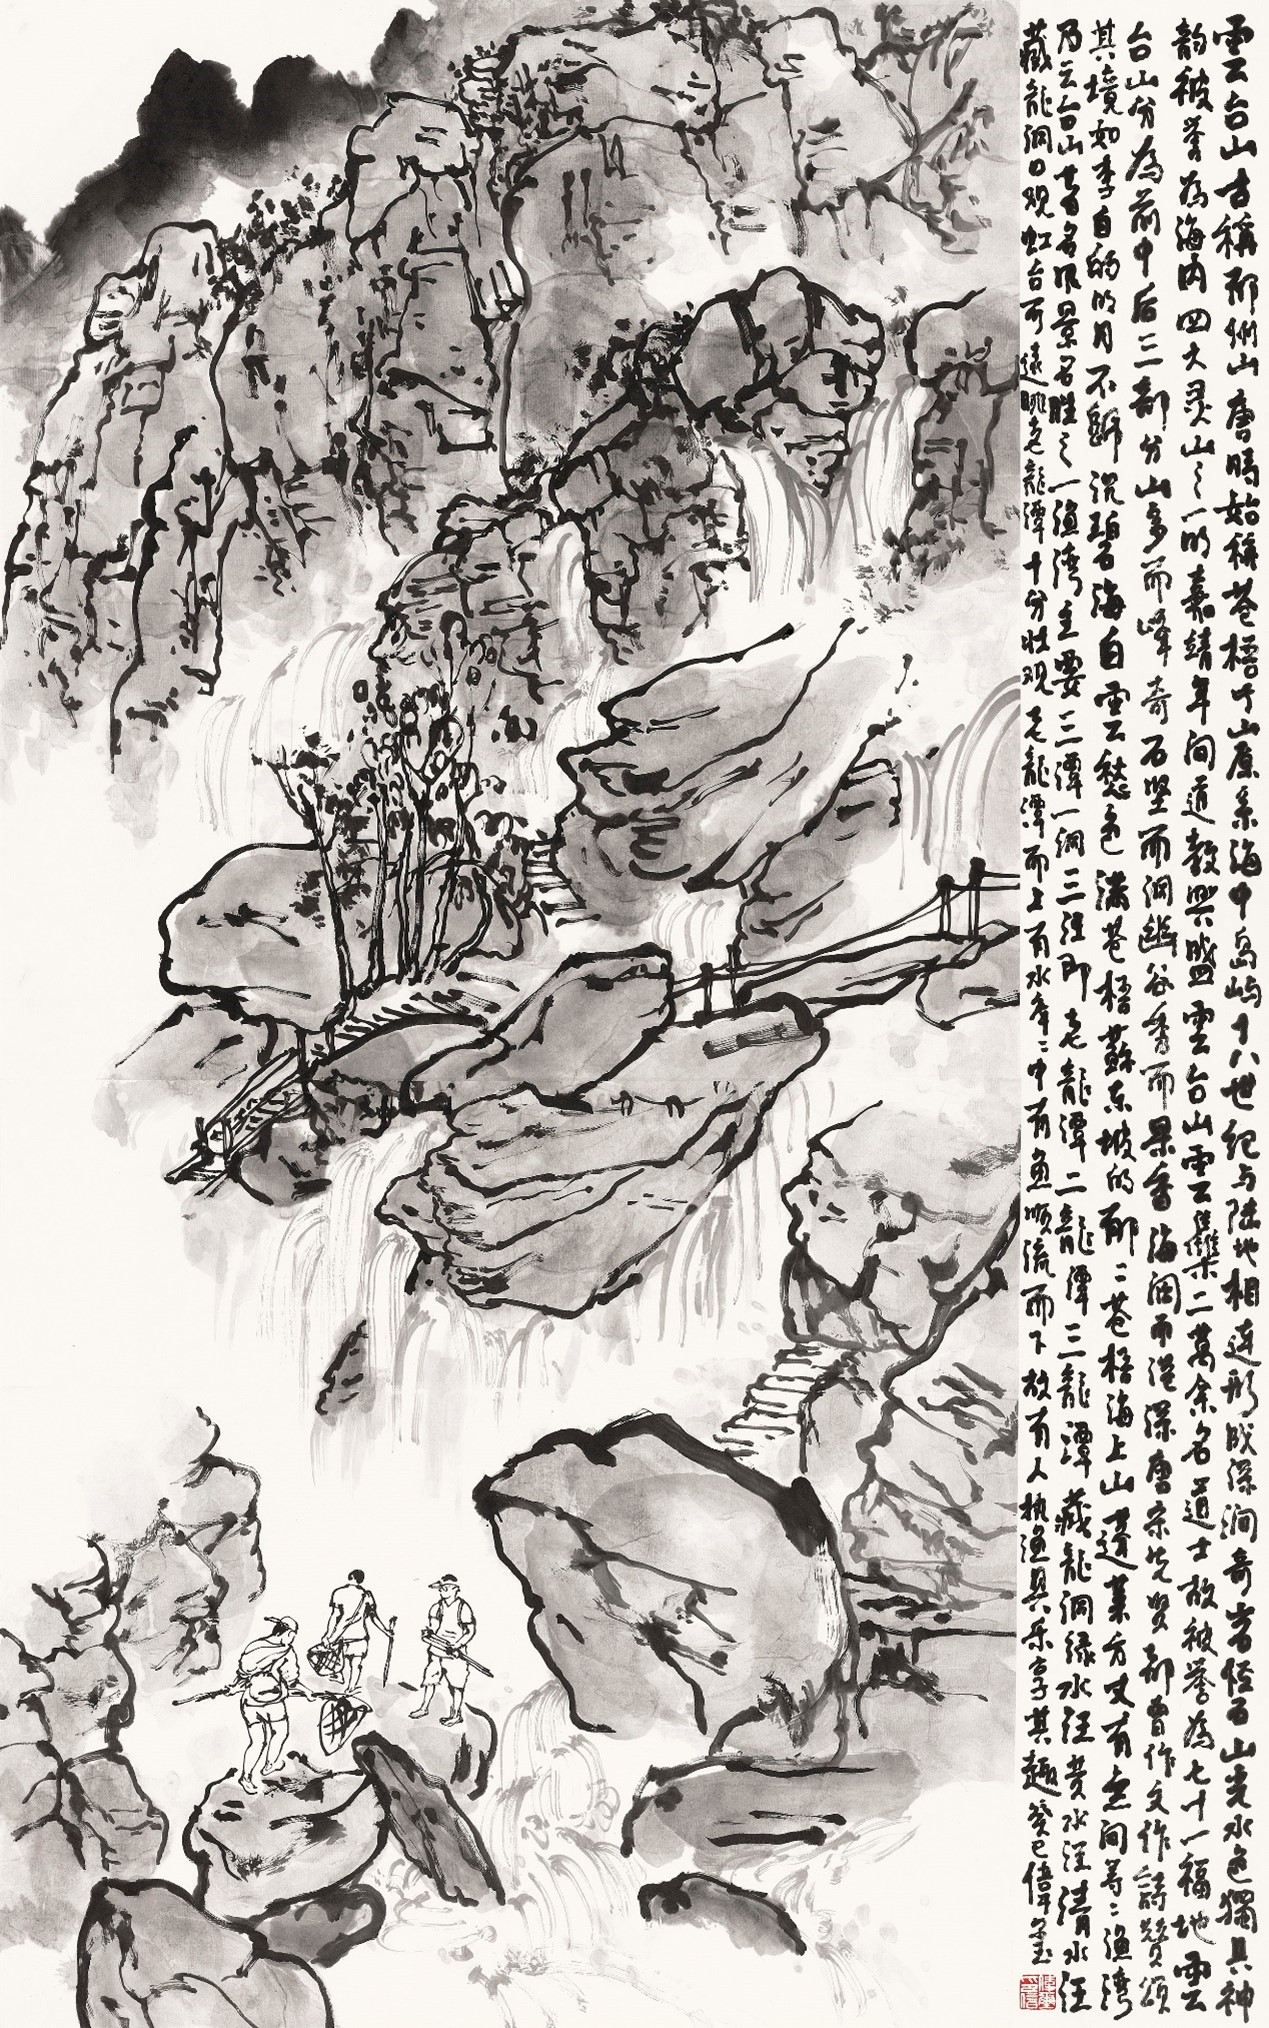 雲台山古稱郁州山唐時始稱蒼梧山原系海中島嶼十八世紀与陆地相连形成深涧奇岩怪石山光水色獨具神
韵被誉为海内四大灵山之一明嘉靖年间道教興盛雲台山雲集二萬余名道士故被誉為七十一福地雲
台山分為前中后三部分山多而峰奇石坚而洞幽谷香而景秀海阔而港深唐宋先贤都曾作文作詩赞颂
其境如李白的明月不歸沉碧海白雲愁色满蒼梧蘇东坡的郁郁蒼梧海上山蓬莱方丈有無间等等渔湾
乃云台山著名風景名胜之一渔湾主要三潭一洞三汪即老龍潭二龍潭三龍潭藏龍洞绿水汪黄水汪清水汪
藏龍洞口观虹台可遠眺老龍潭十分壮观老龍潭而上有水牵牵中有鱼顺流而下故有人执渔具乐享其趣癸巳偉